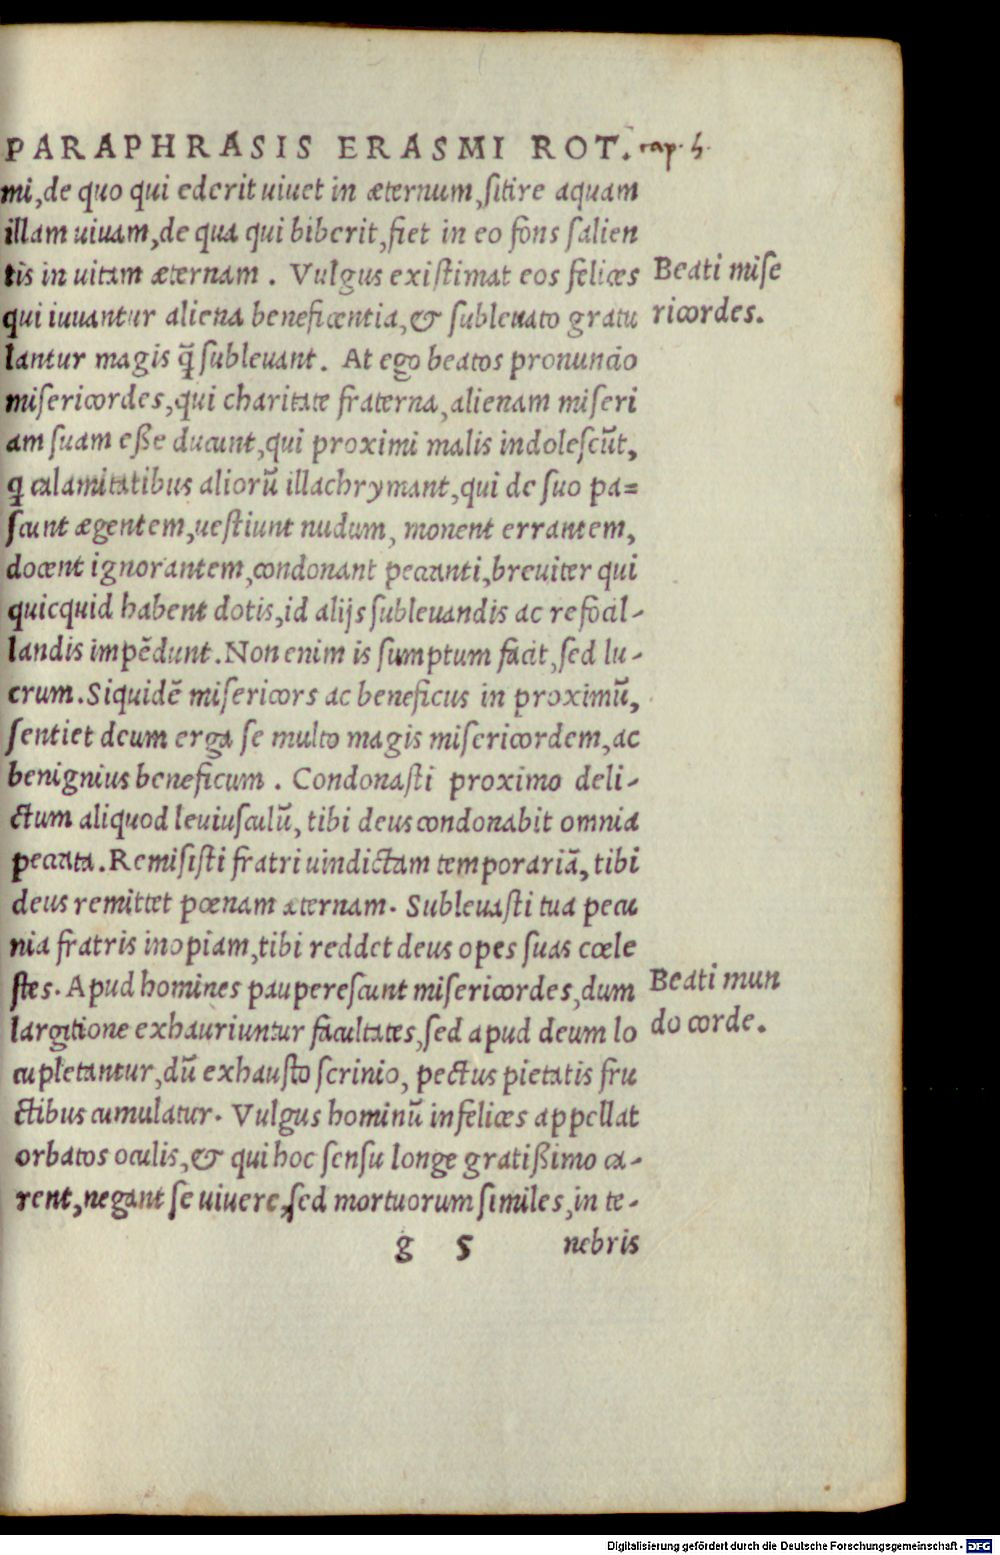 PARAPHRASIS ERASMI ROT. cap. 5.
mi, de quo qui ederit uiuet in æternum, sitire aquam
illam uiuam, de qua qui biberit, fiet in eo fons salien
tis in uitam æternam. Vulgus existimat eos felices
Beati mise
qui iuuantur aliena beneficentia, & subleuato gratu
ricordes.
lantur magis q̃ subleuant. At ego beatos pronuncio
misericordes, qui charitate fraterna, alienam miseri
am suam eße ducunt, qui proximi malis indolescũt,
q̃ calamitatibus aliorũ illachrymant, qui de suo pa=
scunt ægentem, uestiunt nudum, monent errantem,
docent ignorantem, condonant peccanti, breuiter qui
quicquid habent dotis, id alijs subleuandis ac refocil-
landis impẽdunt. Non enim is sumptum facit, sed lu-
crum. Siquidẽ misericors ac beneficus in proximũ,
sentiet deum erga se multo magis misericordem, ac
benignius beneficum. Condonasti proximo deli-
ctum aliquod leuiusculũ, tibi deus condonabit omnia
peccata. Remisisti fratri uindictam temporariã, tibi
deus remittet pœnam æternam. Subleuasti tua pecu
nia fratris inopiam, tibi reddet deus opes suas cœle
stes. Apud homines pauperescunt misericordes, dum
Beati mun
largitione exhauriuntur facultates, sed apud deum lo
do corde.
cupletantur, dũ exhausto scrinio, pectus pietatis fru
ctibus cumulatur. Vulgus hominũ infelices appellat
orbatos oculis, & qui hoc sensu longe gratißimo ca-
rent, negant se uiuere, sed mortuorum similes, in te-
g 5 nebris
Digitalisierung gefördert durch die Deutsche Forschungsgemeinschaft - DFG